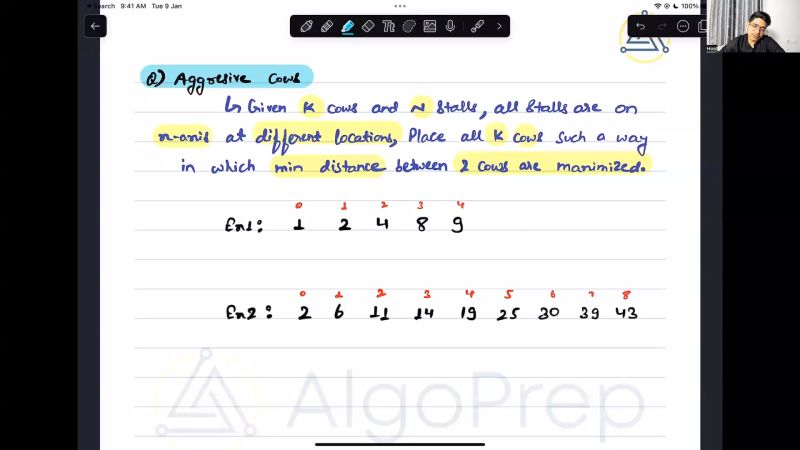 Search 9:41 AM Tue 9 Jan
100%
Q) Aggresive Cows
↳ Given K cows and N stalls, all stalls are on
x-axis at different locations, Place all K cows such a way
in which min distance between 2 cows are maximized.
0 1 2 3 4
Ex1: 1 2 4 8 9
0 1 2 3 4 5 6 7 8
Ex2: 2 6 11 14 19 25 30 39 43
AlgoPrep